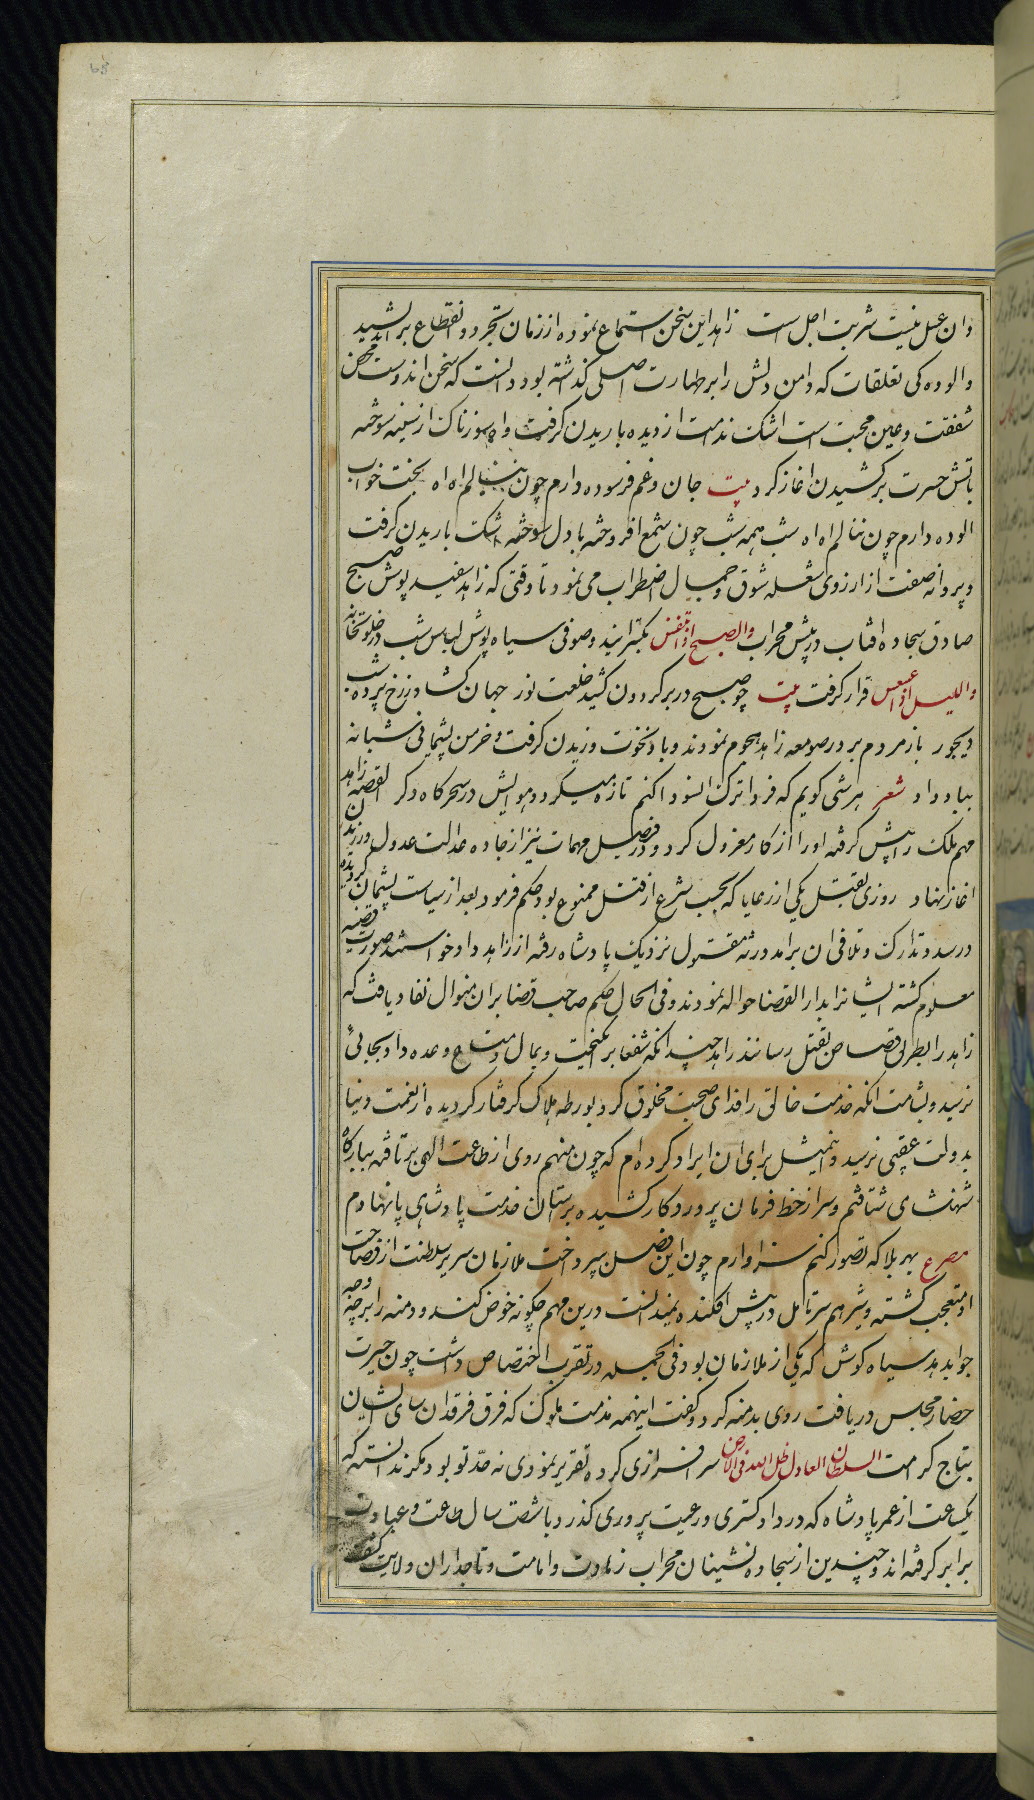 وان عسل نیست شربت اجل است زاهد این سخن استماع نموده از زمان تجرد و انقطاع براندیشید
والوده کی تعلقات که دامن دلش را بر طهارت اصلی گذشته بود دانست که سخن اندوست محض
شفقت وعین محبت است اشک ندامت از دیده باریدن گرفت واه سوزناک از سینه سوخته
باتش حسرت برکشیدن اغاز کرد بیت جان وغم فرسوده دارم چون ننالم اه اه بخت خواب
الوده دارم چون ننالم اه اه شب همه شب چون شمع افروخته با دل سوخته اشک باریدن گرفت
وپروانه صفت از ارزوی شعله شوق وجمال اضطراب می نمود تا وقتی که زاهد سفید پوش صبح
صادق سجاده افتاب در پیش محراب والصبح اذا تنفس بگسترانید وصوفی سیاه پوش لباس شب در خلوتخانه
واللیل اذا عسعس قرار گرفت بیت چو صبح در بر گردون کشید خلعت نور جهان گشاد ز رخ پرده شب
دیجور باز مردم بر در صومعه زاهد هجوم نمودند وباد نخوت وزیدن گرفت وخرمن پشیمانی شبانه
بباد داد شعر هر شبی گویم که فردا ترک این سودا کنم تازه میگردد هوایش در سحر گاه دگر القصه زاهد
مهم ملک را پیش گرفته اورا از کار معزول کرد ودر فیصل مهمات نیز از جاده عدالت عدول ورزیدن
اغاز نهاد روزی بقتل یکی از رعایا که بحسب شرع از قتل ممنوع بود حکم فرمود بعد از سیاست پشیمان گردیده
درسدد تدارک وتلافی ان برامد ورثه مقتول نزدیک پادشاه رفته از زاهد داد خواستند صورت قضیه
معلوم گشته ایشانرا بدار القضا حواله نمودند وفی الحال حکم صاحب قضا بران منوال نفاد یافت که
زاهد را بطریق قصاص بقتل رسانند زاهد چندانکه شفعا برانگیخت وبمال ومتاع وعده داد بجائی
نرسید وبشامت انکه خدمت خالق را فدای صحبت مخلوق کرد بورطه هلاک گرفتار گردیده از نعمت دنیا
بدولت عقبی نرسید وتمثیل برای ان ایراد کرده ام که چون منهم روی از طاعت الهی برتافته ببارگاه
شهنشاهی شتافتم وسر از خط فرمان پروردکار کشیده برستان خدمت پادشاهی پا نهادم
مصرع بهر بلا که تصور کنم سزاوارم چون این فصل بپرداخت ملازمان سریر سلطنت از فصاحت
او متعجب گشته وشیر هم سر تامل در پیش افکنده نمیدانست درین مهم چگونه خوض کند ودمنه را بر چه وجه
جواب دهد سیاه گوش که یکی از ملازمان بود وفی الجمله در تقرب اختصاص داشت چون حیرت
حضار مجلس دریافت روی بدمنه کرد وگفت اینهمه مذمت ملوک که فرق فرقدان سای ایشان
بتاج کرامت السلطان العادل ظل الله فی الارض سرافرازی کرده تقریر نمودی نه حد تو بود مگر ندانسته که
یک ساعت از عمر پادشاه که در داد گستری ورعیت پروری گذرد با شصت سال طاعت وعبادت
برابر گرفته اند وچندین از سجاده نشینان محراب زهادت وامامت وتاجداران ولایت کشف